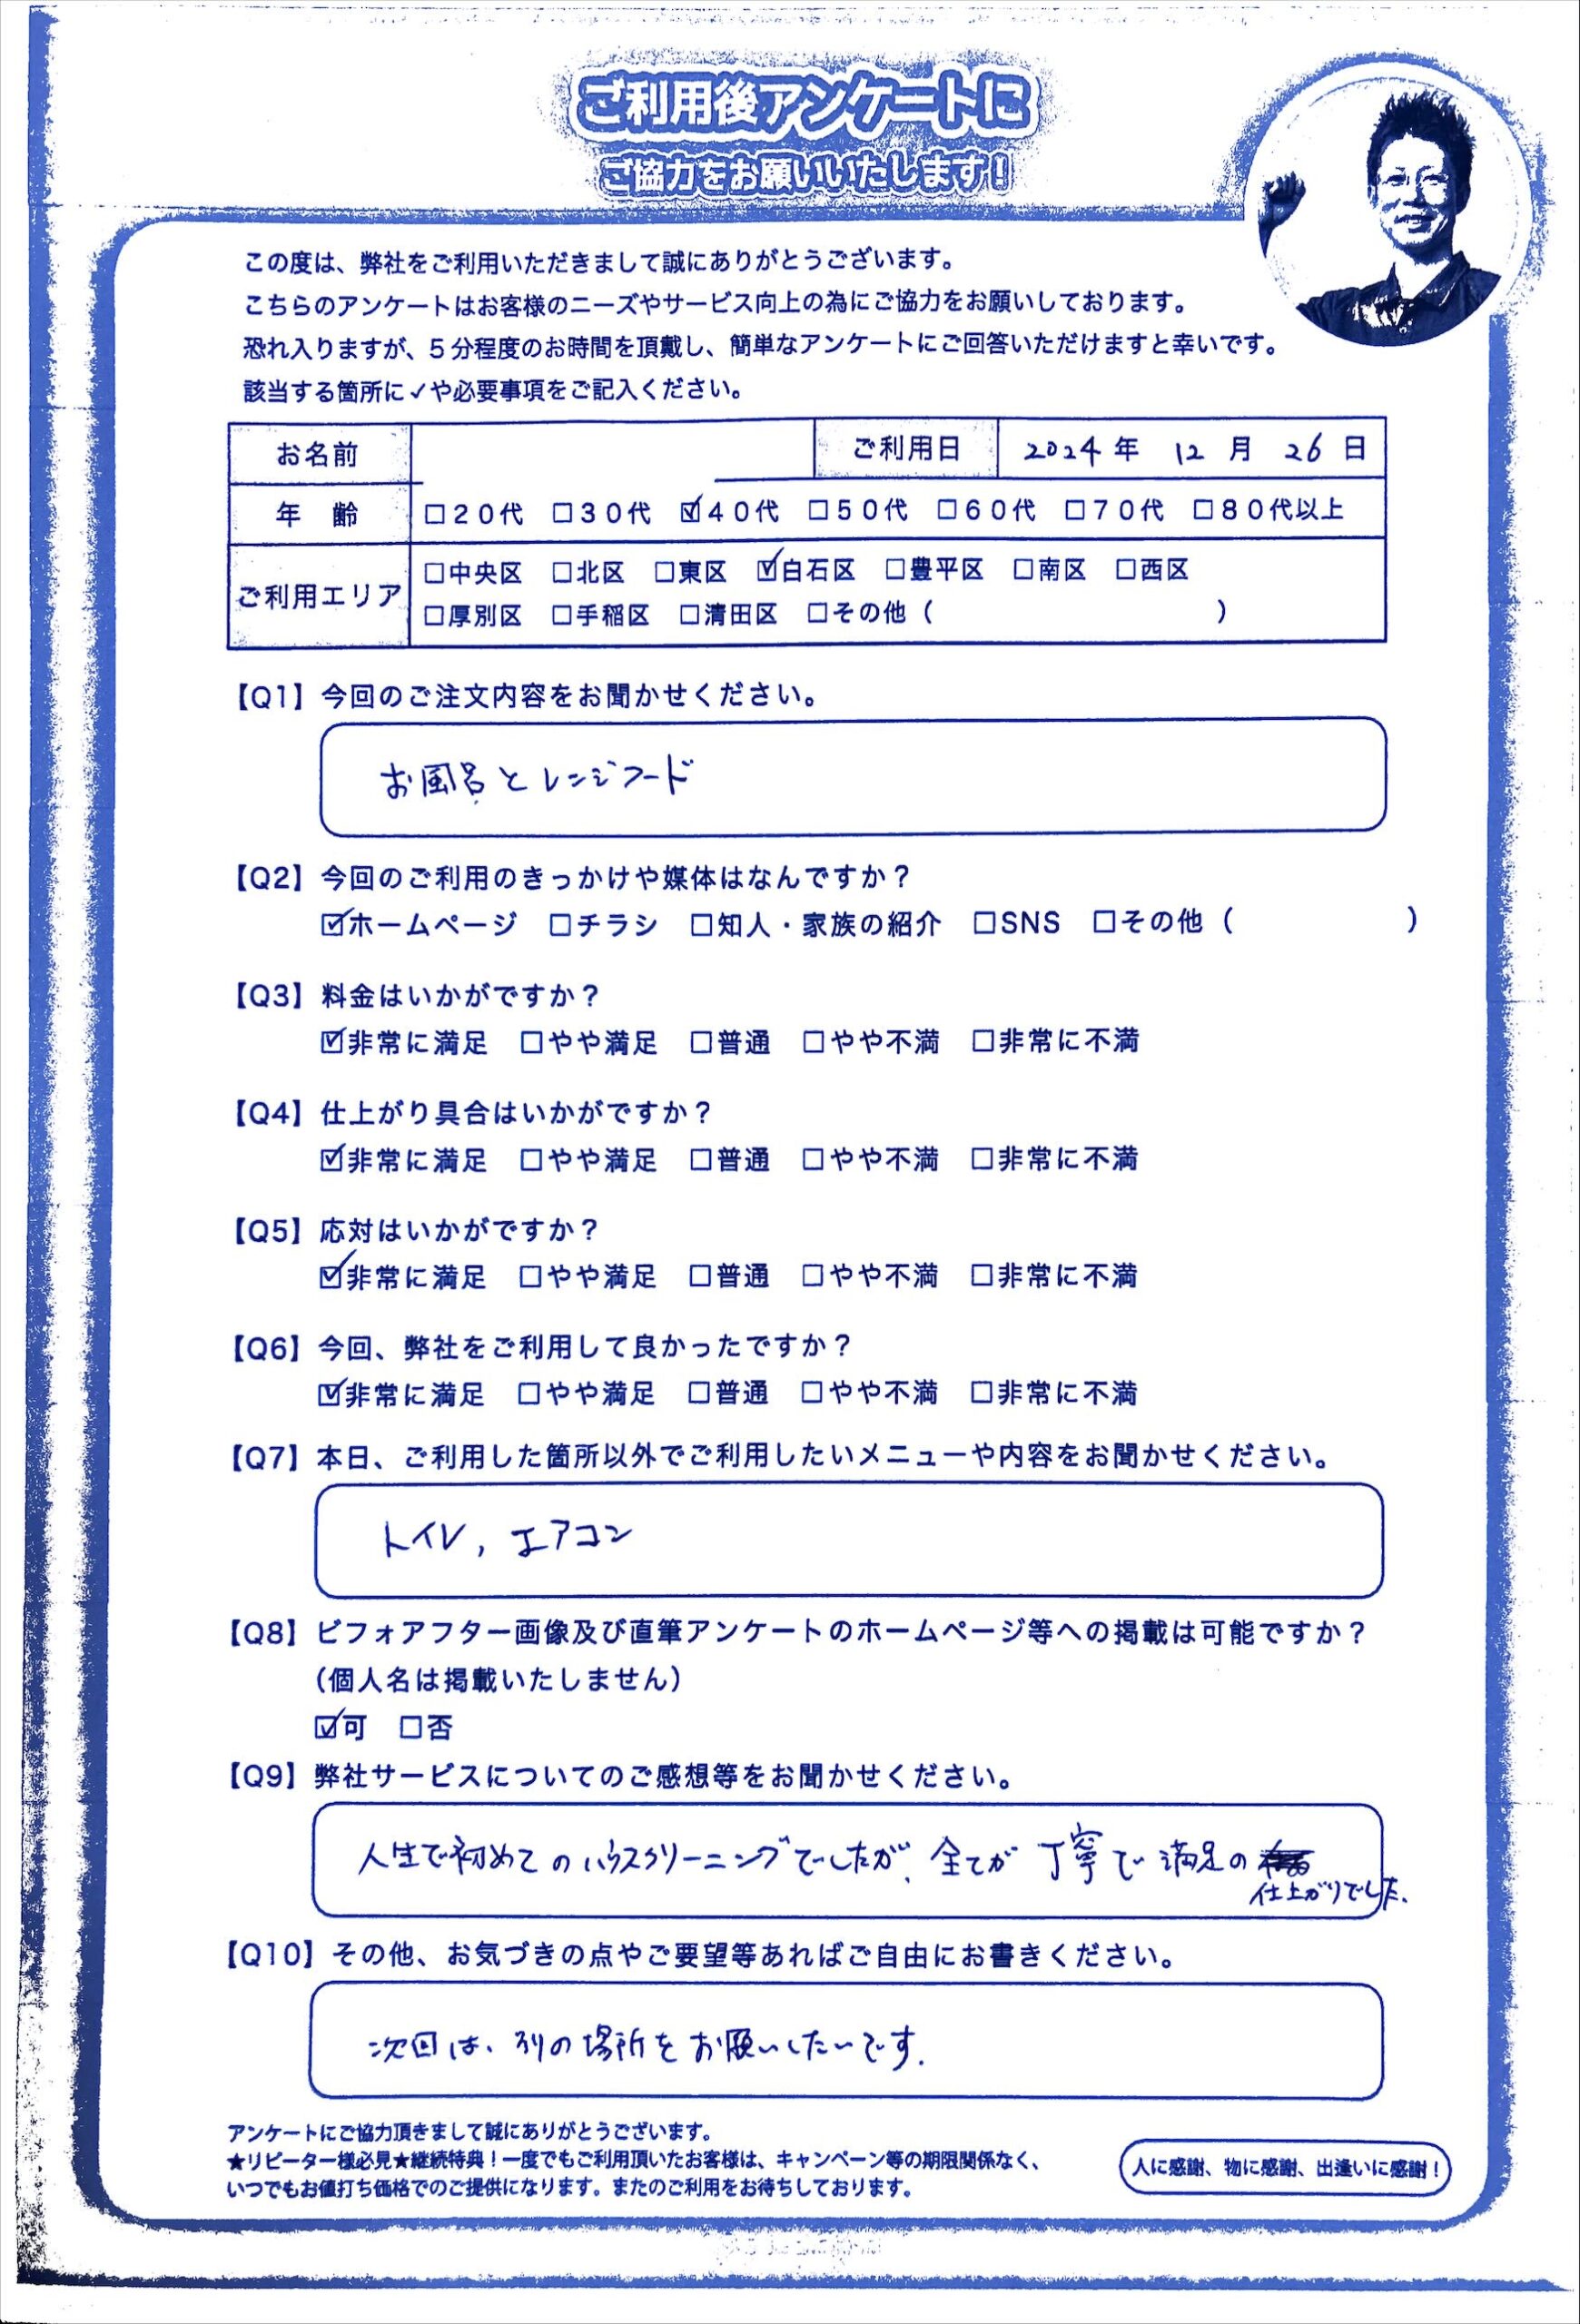 ご利用後アンケートに
ご協力をお願いいたします！
この度は、弊社をご利用いただきまして誠にありがとうございます。
こちらのアンケートはお客様のニーズやサービス向上の為にご協力をお願いしております。
恐れ入りますが、5分程度のお時間を頂戴し、簡単なアンケートにご回答いただけますと幸いです。
該当する箇所に✓や必要事項をご記入ください。
お名前 ご利用日 2024年 12月 26日
年 齢 □20代 □30代 ☑40代 □50代 □60代 □70代 □80代以上
ご利用エリア □中央区 □北区 □東区 ☑白石区 □豊平区 □南区 □西区
□厚別区 □手稲区 □清田区 □その他（ ）
【Q1】今回のご注文内容をお聞かせください。
お風呂とレンジフード
【Q2】今回のご利用のきっかけや媒体はなんですか？
☑ホームページ □チラシ □知人・家族の紹介 □SNS □その他（ ）
【Q3】料金はいかがですか？
☑非常に満足 □やや満足 □普通 □やや不満 □非常に不満
【Q4】仕上がり具合はいかがですか？
☑非常に満足 □やや満足 □普通 □やや不満 □非常に不満
【Q5】応対はいかがですか？
☑非常に満足 □やや満足 □普通 □やや不満 □非常に不満
【Q6】今回、弊社をご利用して良かったですか？
☑非常に満足 □やや満足 □普通 □やや不満 □非常に不満
【Q7】本日、ご利用した箇所以外でご利用したいメニューや内容をお聞かせください。
トイレ, エアコン
【Q8】ビフォアフター画像及び直筆アンケートのホームページ等への掲載は可能ですか？
（個人名は掲載いたしません）
☑可 □否
【Q9】弊社サービスについてのご感想等をお聞かせください。
人生で初めてのハウスクリーニングでしたが、全てが丁寧で満足の
仕上がりでした.
【Q10】その他、お気づきの点やご要望等あればご自由にお書きください。
次回は、別の場所をお願いしたいです.
アンケートにご協力頂きまして誠にありがとうございます。
★リピーター様必見★継続特典！一度でもご利用頂いたお客様は、キャンペーン等の期限関係なく、
いつでもお値打ち価格でのご提供になります。またのご利用をお待ちしております。
人に感謝、物に感謝、出逢いに感謝！